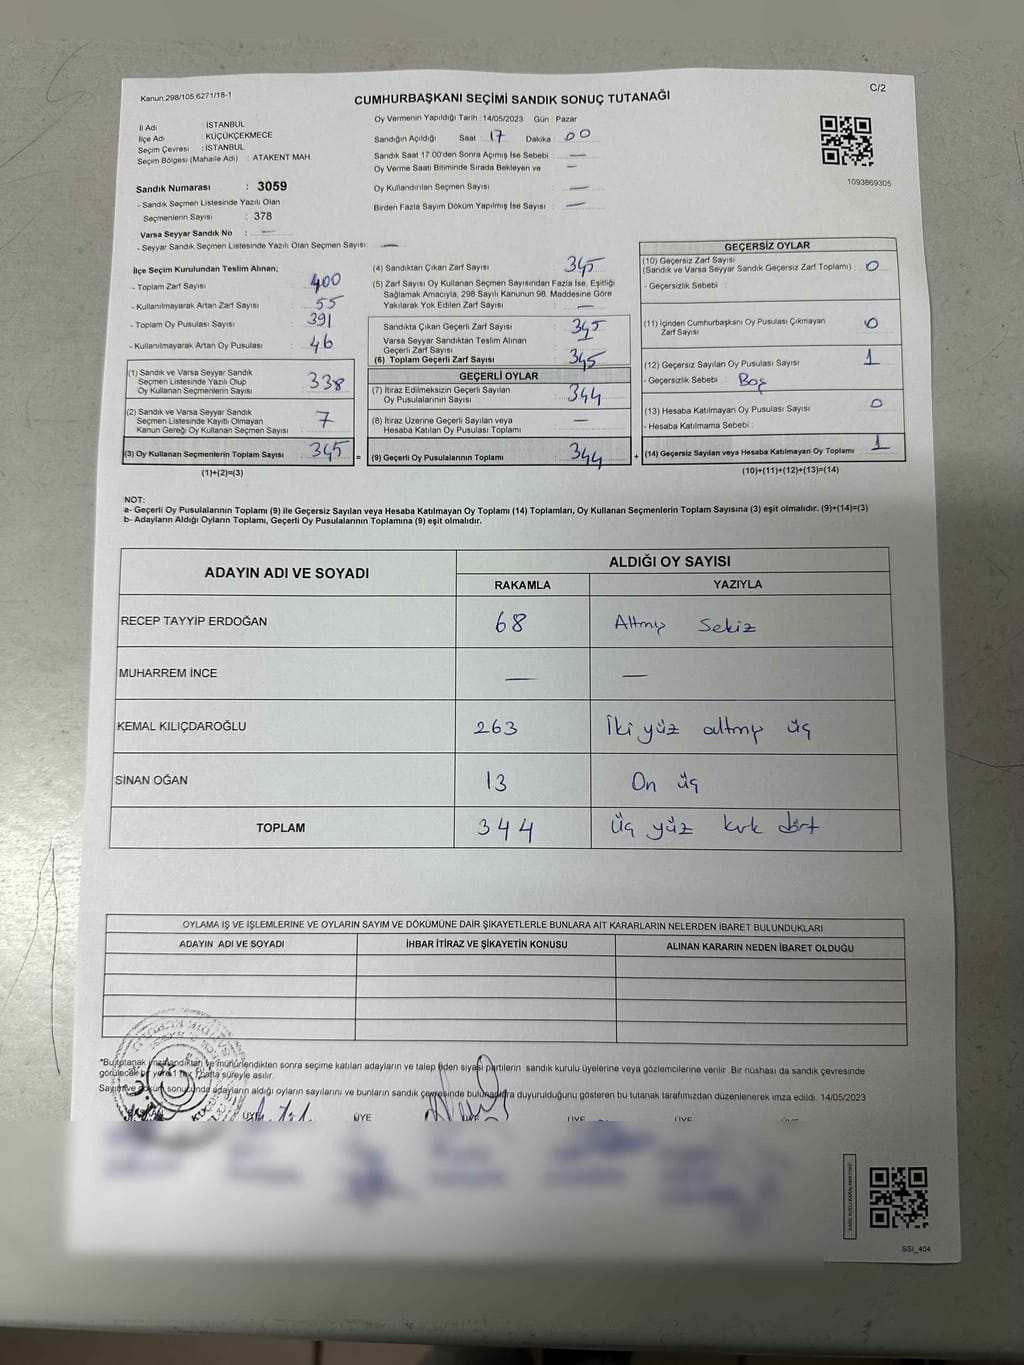 Kanun:298/105;6271/18-1
CUMHURBAŞKANI SEÇİMİ SANDIK SONUÇ TUTANAĞI
C/2
Oy Vermenin Yapıldığı Tarih : 14/05/2023 Gün : Pazar
İl Adı : İSTANBUL
İlçe Adı : KÜÇÜKÇEKMECE
Seçim Çevresi : İSTANBUL
Seçim Bölgesi (Mahalle Adı) : ATAKENT MAH.
Sandığın Açıldığı Saat : 17 Dakika : 00
Sandık Saat 17:00'den Sonra Açımış İse Sebebi : —
Oy Verme Saati Bitiminde Sırada Bekleyen ve —
Oy Kullandırılan Seçmen Sayısı : —
Birden Fazla Sayım Döküm Yapılmış İse Sayısı : —
1093869305
Sandık Numarası : 3059
- Sandık Seçmen Listesinde Yazılı Olan
Seçmenlerin Sayısı : 378
Varsa Seyyar Sandık No : —
- Seyyar Sandık Seçmen Listesinde Yazılı Olan Seçmen Sayısı: —
İlçe Seçim Kurulundan Teslim Alınan;
- Toplam Zarf Sayısı : 400
- Kullanılmayarak Artan Zarf Sayısı : 55
- Toplam Oy Pusulası Sayısı : 391
- Kullanılmayarak Artan Oy Pusulası : 46
(1) Sandık ve Varsa Seyyar Sandık
Seçmen Listesinde Yazılı Olup
Oy Kullanan Seçmenlerin Sayısı : 338
(2) Sandık ve Varsa Seyyar Sandık
Seçmen Listesinde Kayıtlı Olmayan
Kanun Gereği Oy Kullanan Seçmen Sayısı : 7
(3) Oy Kullanan Seçmenlerin Toplam Sayısı : 345
(1)+(2)=(3)
(4) Sandıktan Çıkan Zarf Sayısı : 345
(5) Zarf Sayısı Oy Kullanan Seçmen Sayısından Fazla İse, Eşitliği
Sağlamak Amacıyla, 298 Sayılı Kanunun 98. Maddesine Göre
Yakılarak Yok Edilen Zarf Sayısı : —
Sandıkta Çıkan Geçerli Zarf Sayısı : 345
Varsa Seyyar Sandıktan Teslim Alınan
Geçerli Zarf Sayısı : —
(6) Toplam Geçerli Zarf Sayısı : 345
GEÇERLİ OYLAR
(7) İtiraz Edilmeksizin Geçerli Sayılan
Oy Pusulalarının Sayısı : 344
(8) İtiraz Üzerine Geçerli Sayılan veya
Hesaba Katılan Oy Pusulası Toplamı : —
= (9) Geçerli Oy Pusulalarının Toplamı : 344
GEÇERSİZ OYLAR
(10) Geçersiz Zarf Sayısı
(Sandık ve Varsa Seyyar Sandık Geçersiz Zarf Toplamı) : 0
- Geçersizlik Sebebi :
(11) İçinden Cumhurbaşkanı Oy Pusulası Çıkmayan
Zarf Sayısı : 0
(12) Geçersiz Sayılan Oy Pusulası Sayısı : 1
- Geçersizlik Sebebi : Boş
(13) Hesaba Katılmayan Oy Pusulası Sayısı : 0
- Hesaba Katılmama Sebebi :
+ (14) Geçersiz Sayılan veya Hesaba Katılmayan Oy Toplamı : 1
(10)+(11)+(12)+(13)=(14)
NOT:
a- Geçerli Oy Pusulalarının Toplamı (9) ile Geçersiz Sayılan veya Hesaba Katılmayan Oy Toplamı (14) Toplamları, Oy Kullanan Seçmenlerin Toplam Sayısına (3) eşit olmalıdır. (9)+(14)=(3)
b- Adayların Aldığı Oyların Toplamı, Geçerli Oy Pusulalarının Toplamına (9) eşit olmalıdır.
ADAYIN ADI VE SOYADI
ALDIĞI OY SAYISI
RAKAMLA YAZIYLA
RECEP TAYYİP ERDOĞAN 68 Altmış Sekiz
MUHARREM İNCE — —
KEMAL KILIÇDAROĞLU 263 İki yüz altmış üç
SİNAN OĞAN 13 On üç
TOPLAM 344 Üç yüz kırk dört
OYLAMA İŞ VE İŞLEMLERİNE VE OYLARIN SAYIM VE DÖKÜMÜNE DAİR ŞİKAYETLERLE BUNLARA AİT KARARLARIN NELERDEN İBARET BULUNDUKLARI
ADAYIN ADI VE SOYADI İHBAR İTİRAZ VE ŞİKAYETİN KONUSU ALINAN KARARIN NEDEN İBARET OLDUĞU
*Bu tutanak imzalandıktan ve mühürlendikten sonra seçime katılan adayların ve talep eden siyasi partilerin sandık kurulu üyelerine veya gözlemcilerine verilir. Bir nüshası da sandık çevresinde
görülecek bir yere 1 hafta süreyle asılır.
Sayım ve döküm sonucunda adayların aldığı oyların sayılarını ve bunların sandık çevresinde bulunanlara duyurulduğunu gösteren bu tutanak tarafımızdan düzenlenerek imza edildi. 14/05/2023
ÜYE ÜYE ÜYE ÜYE ÜYE
SSI_404